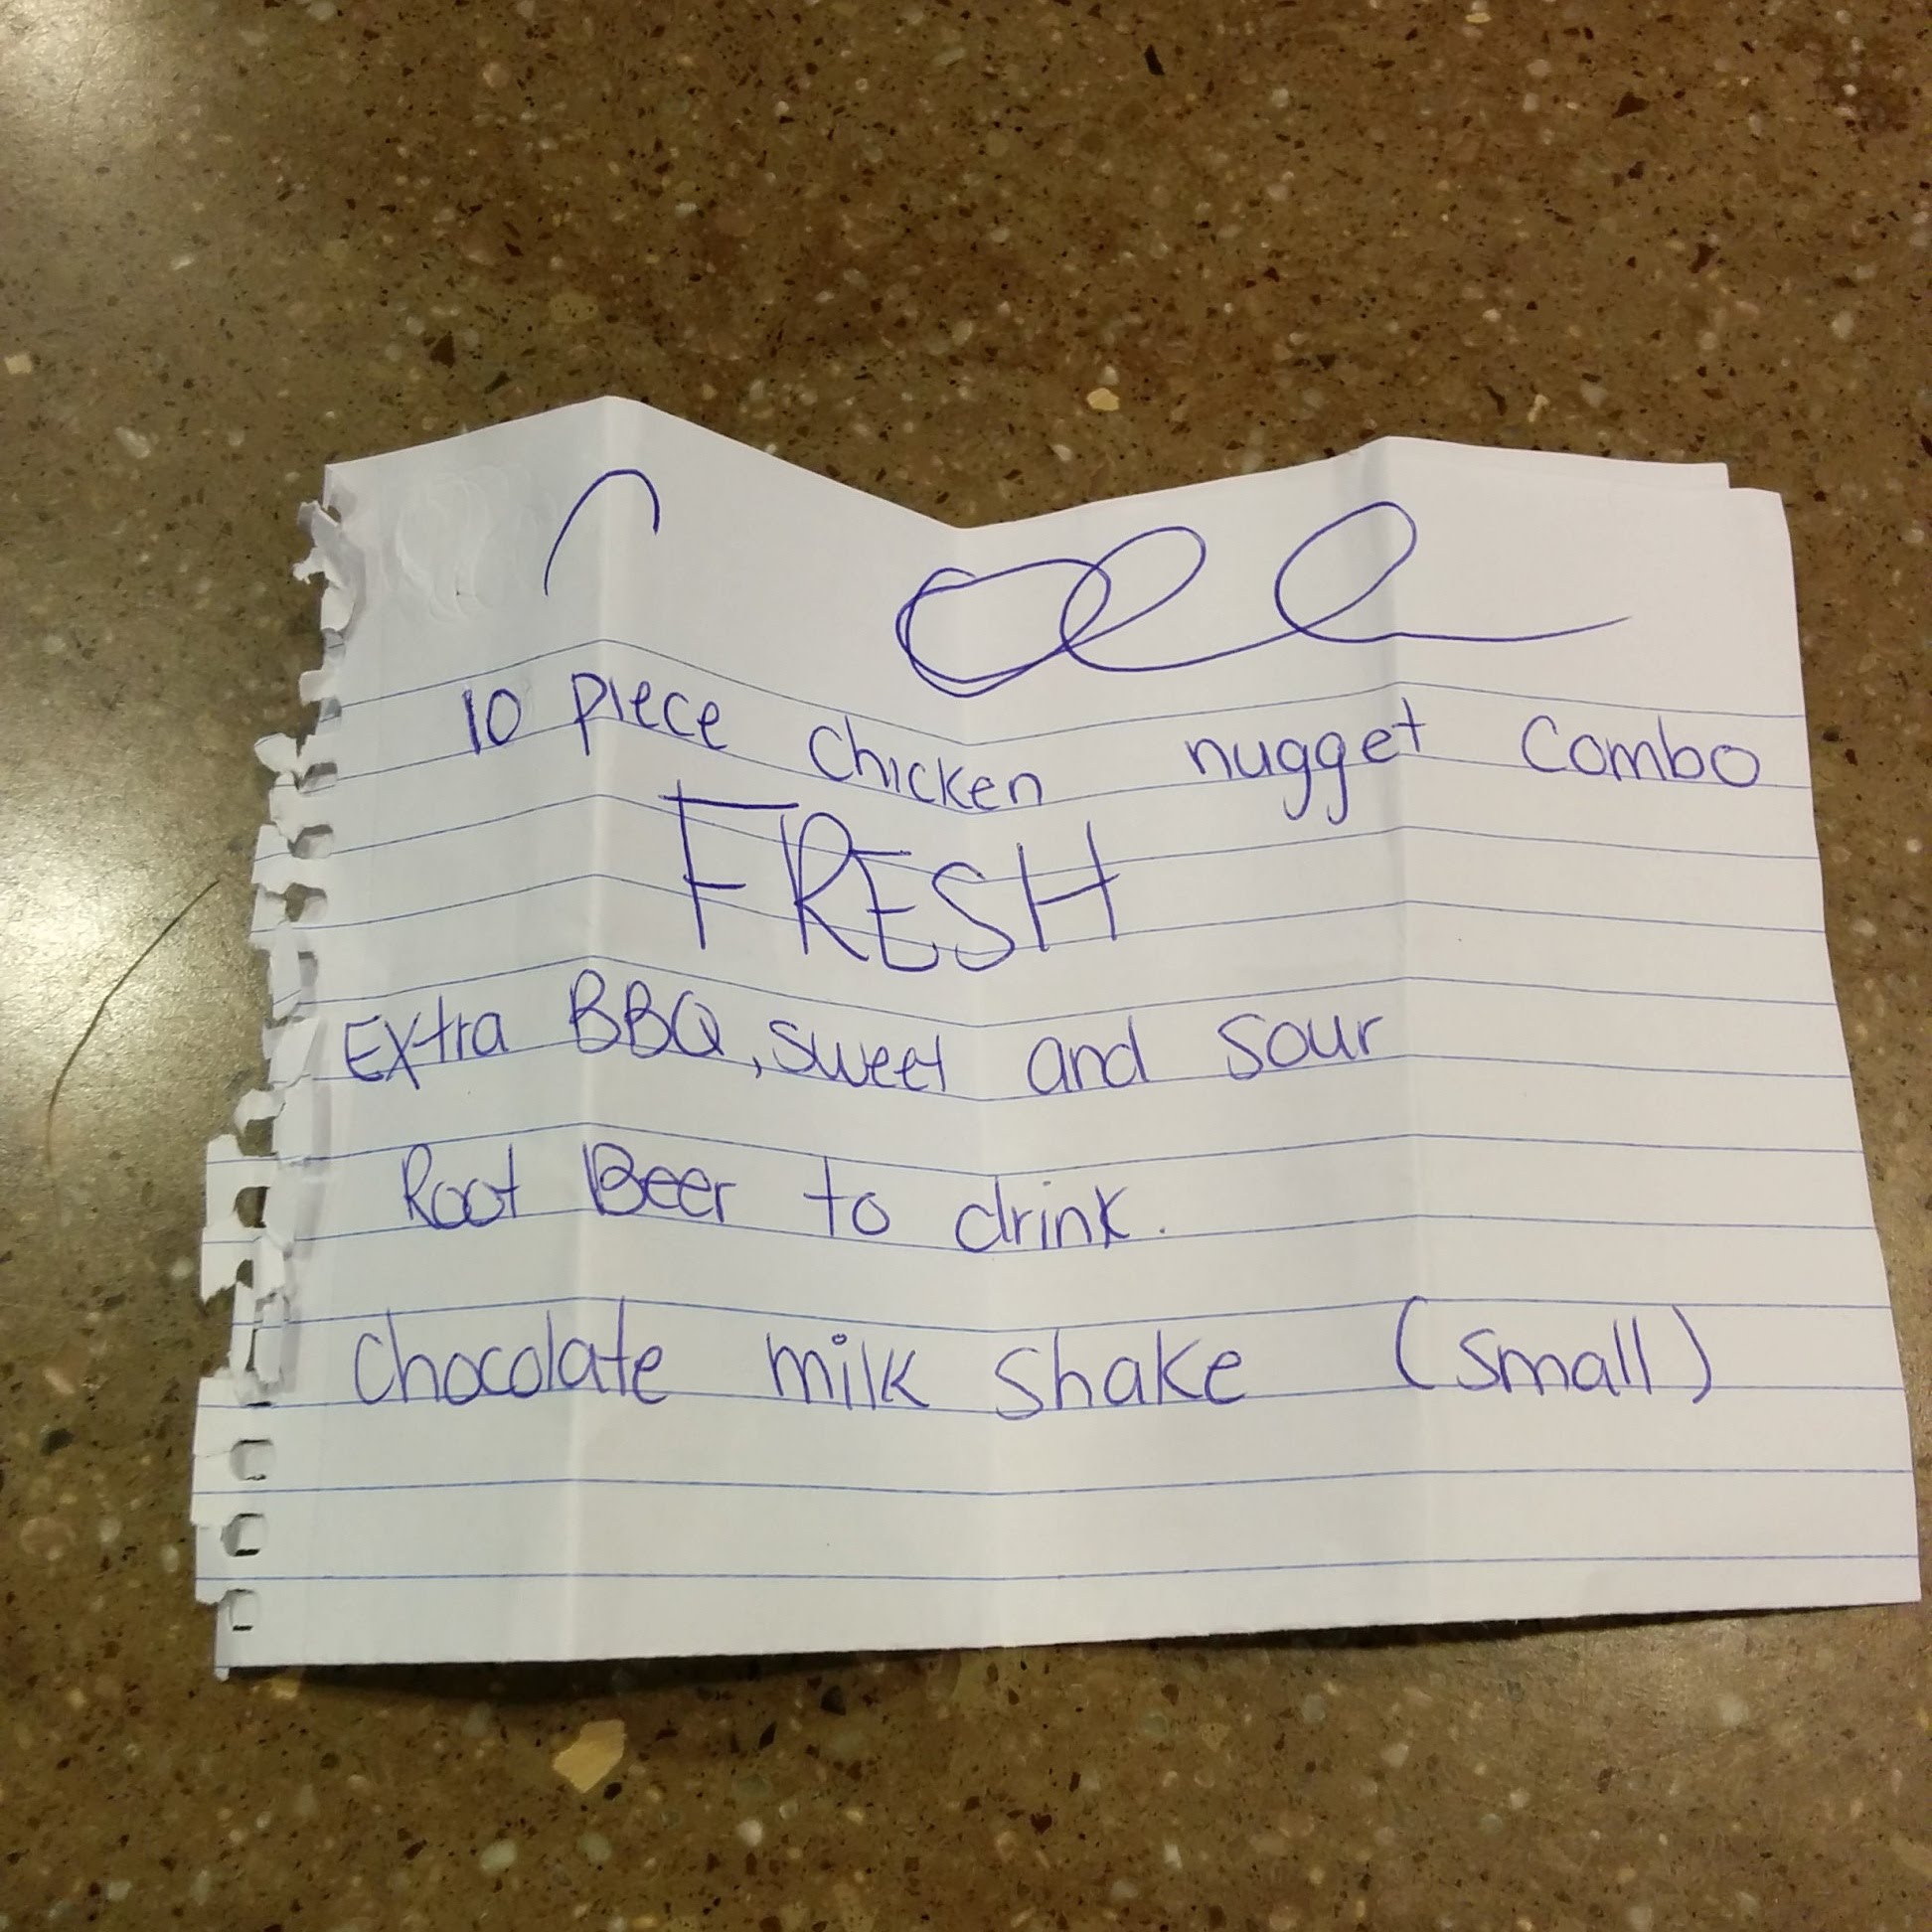 10 Piece Chicken nugget Combo
FRESH
Extra BBQ, sweet and sour
Root Beer to drink.
Chocolate milk shake (small)